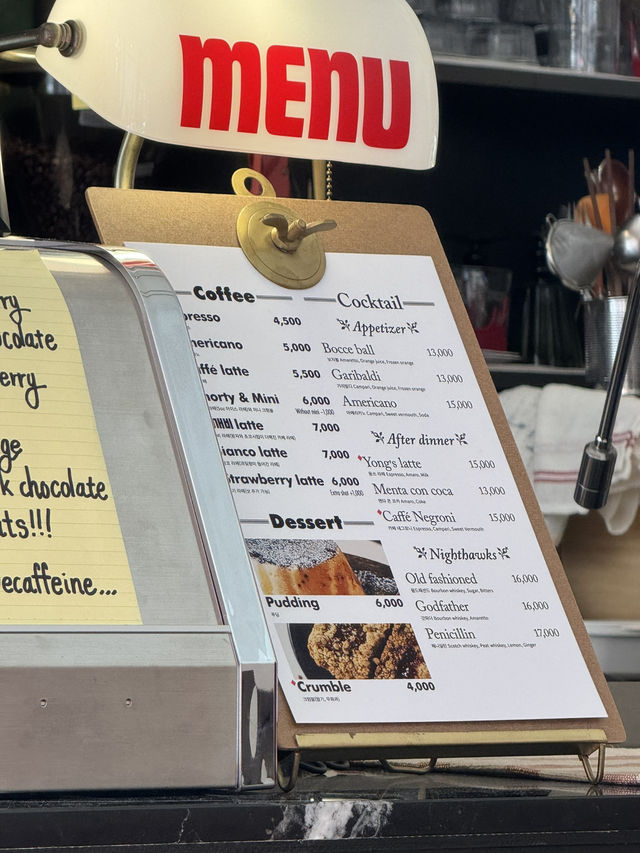 MENU
Coffee
presso 4,500
mericano 5,000
affé latte 5,500
horty & Mini 6,000
Without mini -1,000
latte 7,000
ianco latte 7,000
trawberry latte 6,000
Extra shot +1,000
Dessert
Pudding 6,000
푸딩
Crumble 4,000
Cocktail
Appetizer
Bocce ball 13,000
Amaretto, Orange juice, Frozen orange
Garibaldi 13,000
가리발디 Campari, Orange juice, Frozen orange
Americano 15,000
아메리카노 Campari, Sweet vermouth, Soda
After dinner
Yong's latte 15,000
Espresso, Amaro, Milk
Menta con coca 13,000
멘타 콘 코카 Amaro, Coke
Caffé Negroni 15,000
카페 네그로니 Espresso, Campari, Sweet Vermouth
Nighthawks
Old fashioned 16,000
올드패션드 Bourbon whiskey, Sugar, Bitters
Godfather 16,000
갓파더 Bourbon whiskey, Amaretto
Penicillin 17,000
페니실린 Scotch whiskey, Peat whiskey, Lemon, Ginger
rry
ocolate
erry
ge
k chocolate
uts!!!
ecaffeine...